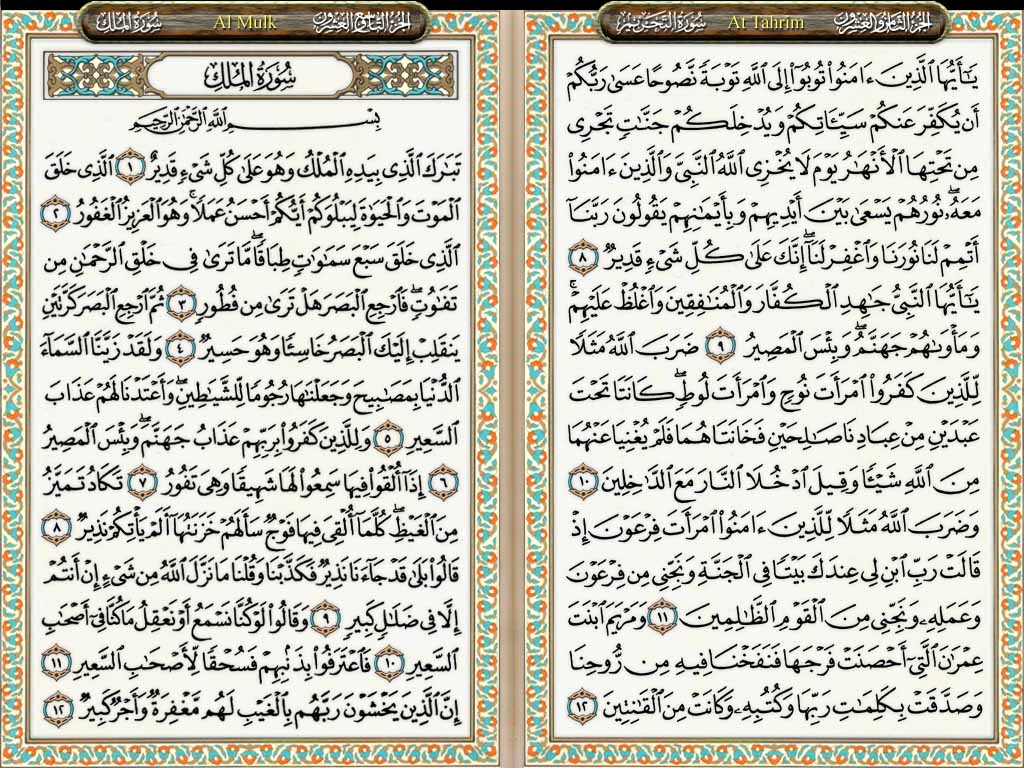 الجزء الثامن والعشرون
At Tahrim
سورة التحريم
يَـٰٓأَيُّهَا ٱلَّذِينَ ءَامَنُوا۟ تُوبُوٓا۟ إِلَى ٱللَّهِ تَوْبَةً نَّصُوحًا عَسَىٰ رَبُّكُمْ
أَن يُكَفِّرَ عَنكُمْ سَيِّـَٔاتِكُمْ وَيُدْخِلَكُمْ جَنَّـٰتٍ تَجْرِى
مِن تَحْتِهَا ٱلْأَنْهَـٰرُ يَوْمَ لَا يُخْزِى ٱللَّهُ ٱلنَّبِىَّ وَٱلَّذِينَ ءَامَنُوا۟
مَعَهُۥ ۖ نُورُهُمْ يَسْعَىٰ بَيْنَ أَيْدِيهِمْ وَبِأَيْمَـٰنِهِمْ يَقُولُونَ رَبَّنَآ
أَتْمِمْ لَنَا نُورَنَا وَٱغْفِرْ لَنَآ ۖ إِنَّكَ عَلَىٰ كُلِّ شَىْءٍ قَدِيرٌ ٨
يَـٰٓأَيُّهَا ٱلنَّبِىُّ جَـٰهِدِ ٱلْكُفَّارَ وَٱلْمُنَـٰفِقِينَ وَٱغْلُظْ عَلَيْهِمْ ۚ
وَمَأْوَىٰهُمْ جَهَنَّمُ ۖ وَبِئْسَ ٱلْمَصِيرُ ٩ ضَرَبَ ٱللَّهُ مَثَلًا
لِّلَّذِينَ كَفَرُوا۟ ٱمْرَأَتَ نُوحٍ وَٱمْرَأَتَ لُوطٍ ۖ كَانَتَا تَحْتَ
عَبْدَيْنِ مِنْ عِبَادِنَا صَـٰلِحَيْنِ فَخَانَتَاهُمَا فَلَمْ يُغْنِيَا عَنْهُمَا
مِنَ ٱللَّهِ شَيْـًٔا وَقِيلَ ٱدْخُلَا ٱلنَّارَ مَعَ ٱلدَّٰخِلِينَ ١٠
وَضَرَبَ ٱللَّهُ مَثَلًا لِّلَّذِينَ ءَامَنُوا۟ ٱمْرَأَتَ فِرْعَوْنَ إِذْ
قَالَتْ رَبِّ ٱبْنِ لِى عِندَكَ بَيْتًا فِى ٱلْجَنَّةِ وَنَجِّنِى مِن فِرْعَوْنَ
وَعَمَلِهِۦ وَنَجِّنِى مِنَ ٱلْقَوْمِ ٱلظَّـٰلِمِينَ ١١ وَمَرْيَمَ ٱبْنَتَ
عِمْرَٰنَ ٱلَّتِىٓ أَحْصَنَتْ فَرْجَهَا فَنَفَخْنَا فِيهِ مِن رُّوحِنَا
وَصَدَّقَتْ بِكَلِمَـٰتِ رَبِّهَا وَكُتُبِهِۦ وَكَانَتْ مِنَ ٱلْقَـٰنِتِينَ ١٢
Al Mulk
سورة الملك
سُورَةُ المُلْكِ
بِسْمِ ٱللَّهِ ٱلرَّحْمَـٰنِ ٱلرَّحِيمِ
تَبَـٰرَكَ ٱلَّذِى بِيَدِهِ ٱلْمُلْكُ وَهُوَ عَلَىٰ كُلِّ شَىْءٍ قَدِيرٌ ١ ٱلَّذِى خَلَقَ
ٱلْمَوْتَ وَٱلْحَيَوٰةَ لِيَبْلُوَكُمْ أَيُّكُمْ أَحْسَنُ عَمَلًا ۚ وَهُوَ ٱلْعَزِيزُ ٱلْغَفُورُ ٢
ٱلَّذِى خَلَقَ سَبْعَ سَمَـٰوَٰتٍ طِبَاقًا ۖ مَّا تَرَىٰ فِى خَلْقِ ٱلرَّحْمَـٰنِ مِن
تَفَـٰوُتٍ ۖ فَٱرْجِعِ ٱلْبَصَرَ هَلْ تَرَىٰ مِن فُطُورٍ ٣ ثُمَّ ٱرْجِعِ ٱلْبَصَرَ كَرَّتَيْنِ
يَنقَلِبْ إِلَيْكَ ٱلْبَصَرُ خَاسِئًا وَهُوَ حَسِيرٌ ٤ وَلَقَدْ زَيَّنَّا ٱلسَّمَآءَ
ٱلدُّنْيَا بِمَصَـٰبِيحَ وَجَعَلْنَـٰهَا رُجُومًا لِّلشَّيَـٰطِينِ ۖ وَأَعْتَدْنَا لَهُمْ عَذَابَ
ٱلسَّعِيرِ ٥ وَلِلَّذِينَ كَفَرُوا۟ بِرَبِّهِمْ عَذَابُ جَهَنَّمَ ۖ وَبِئْسَ ٱلْمَصِيرُ
٦ إِذَآ أُلْقُوا۟ فِيهَا سَمِعُوا۟ لَهَا شَهِيقًا وَهِىَ تَفُورُ ٧ تَكَادُ تَمَيَّزُ
مِنَ ٱلْغَيْظِ ۖ كُلَّمَآ أُلْقِىَ فِيهَا فَوْجٌ سَأَلَهُمْ خَزَنَتُهَآ أَلَمْ يَأْتِكُمْ نَذِيرٌ ٨
قَالُوا۟ بَلَىٰ قَدْ جَآءَنَا نَذِيرٌ فَكَذَّبْنَا وَقُلْنَا مَا نَزَّلَ ٱللَّهُ مِن شَىْءٍ إِنْ أَنتُمْ
إِلَّا فِى ضَلَـٰلٍ كَبِيرٍ ٩ وَقَالُوا۟ لَوْ كُنَّا نَسْمَعُ أَوْ نَعْقِلُ مَا كُنَّا فِىٓ أَصْحَـٰبِ
ٱلسَّعِيرِ ١٠ فَٱعْتَرَفُوا۟ بِذَنۢبِهِمْ فَسُحْقًا لِّأَصْحَـٰبِ ٱلسَّعِيرِ ١١
إِنَّ ٱلَّذِينَ يَخْشَوْنَ رَبَّهُم بِٱلْغَيْبِ لَهُم مَّغْفِرَةٌ وَأَجْرٌ كَبِيرٌ ١٢